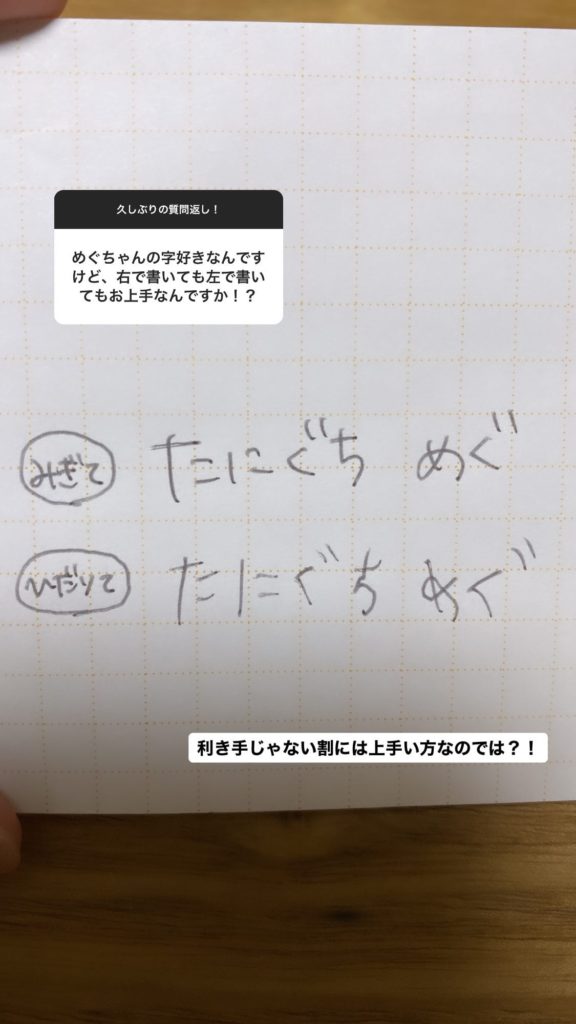 久しぶりの質問返し！
めぐちゃんの字好きなんです
けど、右で書いても左で書い
てもお上手なんですか！？
みぎて たにぐち めぐ
ひだりて たにぐち めぐ
利き手じゃない割には上手い方なのでは？！